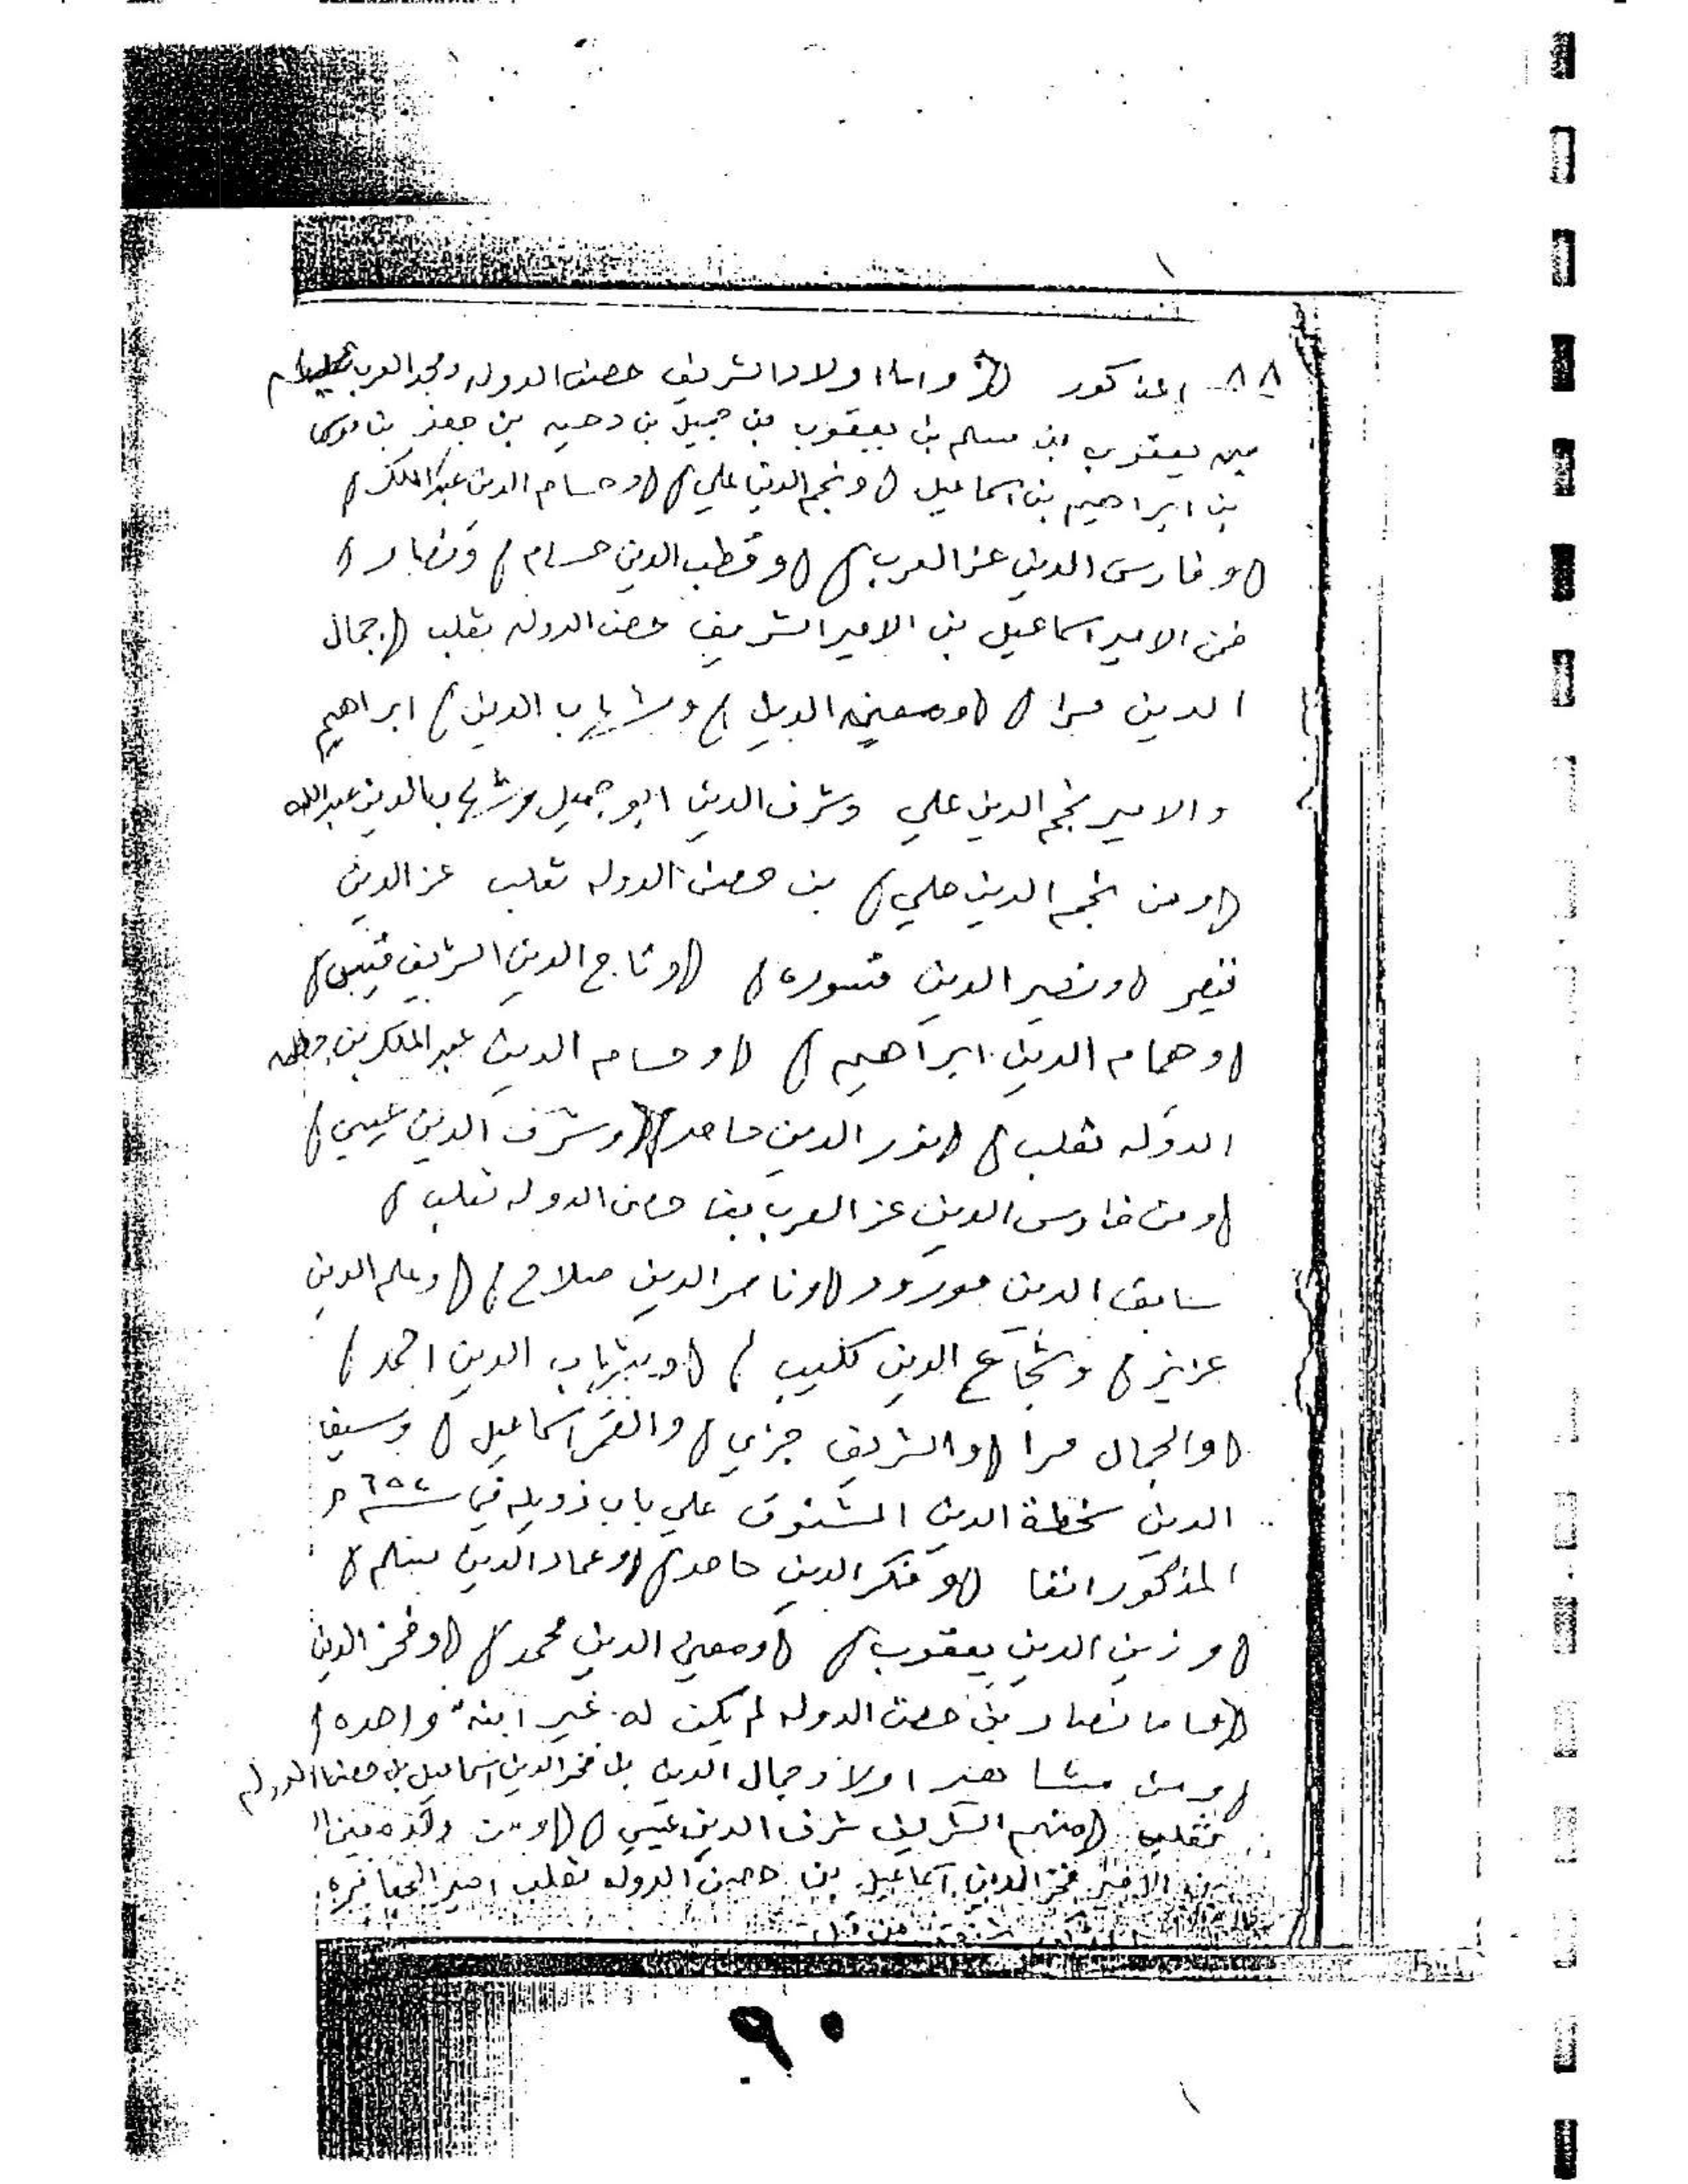 ٨٨ المذكور ( واما اولاد الشريف حصن الدوله ومجد العرب
بن يعقوب بن مسلم بن يعقوب بن جميل بن دحيه بن جعفر بن موسى
بن ابراهيم بن اسماعيل ( ونجم الدين علي ) ( وحسام الدين عبد الملك )
( وفارس الدين عز العرب ) ( وقطب الدين حسام ) ونصار )
فمن الامير اسماعيل بن الامير الشريف حصن الدوله ثعلب ( جمال
الدين مرا ) ( ومعين الديل ) وشهاب الدين ) ابراهيم
والامير نجم الدين علي وشرف الدين ابو جميل وشهاب الدين عبدالله
( ومن نجم الدين علي ) بن حصن الدوله ثعلب عز الدين
( ونصير الدين قسوره ) ( وتاج الدين الشريف قيس )
( وهمام الدين ابراهيم ) ( وحسام الدين عبد الملك بن حصن
الدوله ثعلب ) ( نور الدين حامد ) ( وشرف الدين عيسي )
( ومن فارس الدين عز العرب بن حصن الدوله ثعلب )
سابق الدين مورود ( وناصر الدين صلاح ) ( وعلم الدين
عزيز ) وشجاع الدين كليب ) ( وشهاب الدين احمد )
( والجمال مرا ( والشريف جزي ) والقمر اسماعيل ) وسيف
الدين سخطة الدين المشنوق علي باب زويله في سنة ٦٥٤ م
المذكور انفا ( وفكر الدين حامد ) ( وعماد الدين )
( وزين الدين يعقوب ) ( ومعين الدين محمد ) ( وفخر الدين
( اما نصار بن حصن الدوله لم يكن له غير ابنه واحده )
( ومن مشاهير اولاد جمال الدين بن فخر الدين اسماعيل بن حصن الدوله
ثعلب ( منهم الشريف شرف الدين عيسي ) ( ومن ولده
بن الامير فخر الدين اسماعيل بن حصن الدوله ثعلب امير الجعافره
٩٠